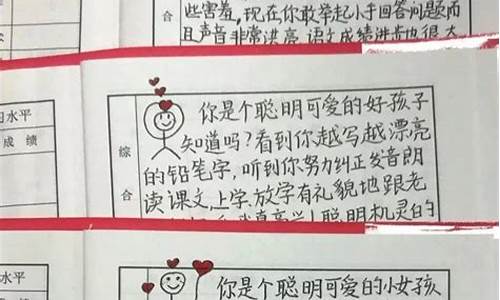 些害羞,现在你敢举起小手回答问题而
且声音非常洪亮,语文成绩进步也很大
合
习水平
成 绩
综
合
你是个聪明可爱的好孩子
知道吗?看到你越写越漂亮
的铅笔字,听到你努力纠正发音朗
读课文,上学、放学有礼貌地跟老
真高兴!聪明机灵的
水平
绩
你是个聪明可爱的小女孩